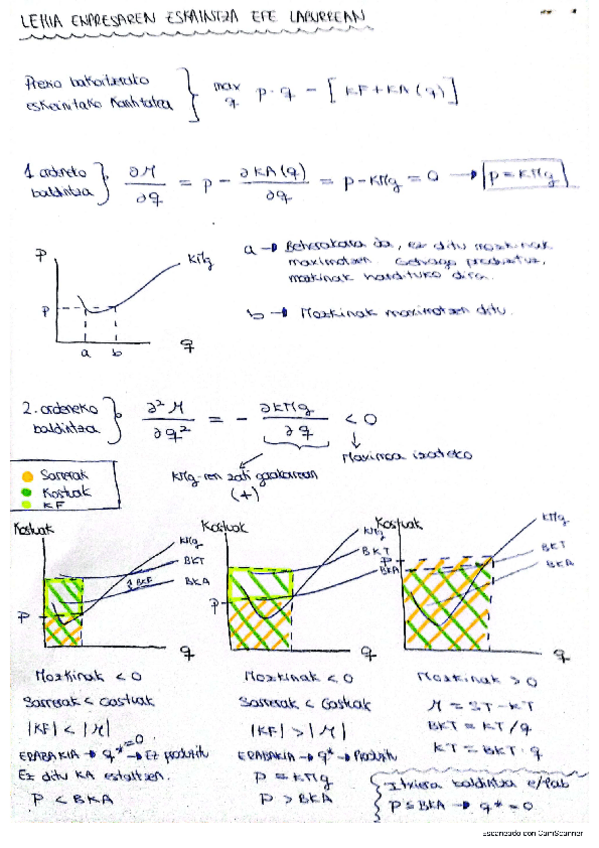 LEHIA ENPRESAREN ESKAINTZA EPE LABURREAN
Prezio bakoitzerako
eskeinitako kantitatea
max
q
p · q - [KF + KA(q)]
1. ordeneko
baldintza
∂M/∂q = p - ∂KA(q)/∂q = p - KMg = 0 → p = KMg
P
KMg
P
a b q
a → Beherakorra da, ez ditu mozkinak
maximotzen. Gehiago produzituz,
mozkinak handituko dira.
b → Mozkinak maximotzen ditu.
2. ordeneko
baldintza
∂²M/∂q² = - ∂KMg/∂q < 0
Maximoa izateko
KMg-ren zati gorakorrean
(+)
Sarrerak
Kostuak
KF
Kostuak
KMg
BKT
BKF
BKA
P
q
Kostuak
KMg
BKT
BKA
P
q
Kostuak
KMg
BKT
BKA
P
q
Mozkinak < 0
Sarrerak < Gastuak
|KF| < |M|
ERABAKIA → q* = 0 → Ez produzitu
Ez ditu KA estaltzen.
P < BKA
Mozkinak < 0
Sarrerak < Gastuak
|KF| > |M|
ERABAKIA → q* → Produzitu
P = KMg
P > BKA
Mozkinak > 0
M = ST - KT
BKT = KT/q
KT = BKT · q
Itxiera baldintza e/lab
P ≤ BKA → q* = 0
Escaneado con CamScanner